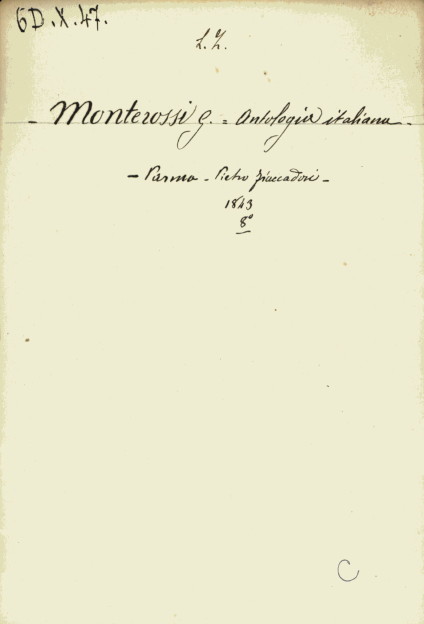 6D.X.47.
L. Z.
- Monterossi G. = Antologia italiana -
- Parma - Pietro Fiaccadori -
1843
8°
C